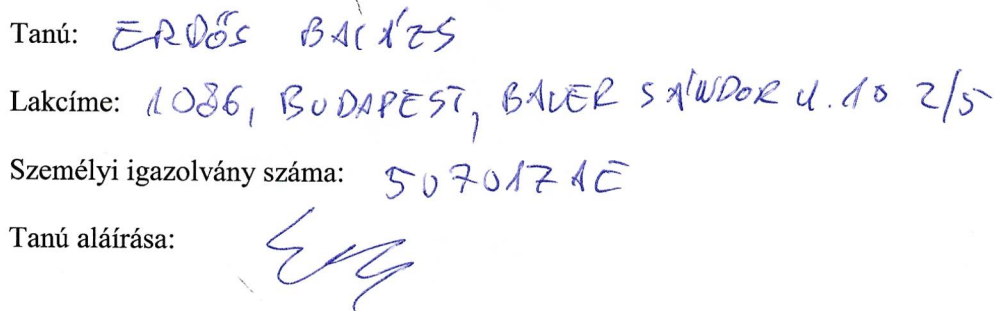 Tanú: ERDŐS BALÁZS
Lakcíme: 1086, BUDAPEST, BAUER SÁNDOR U. 10 2/5
Személyi igazolvány száma: 507017AE
Tanú aláírása: